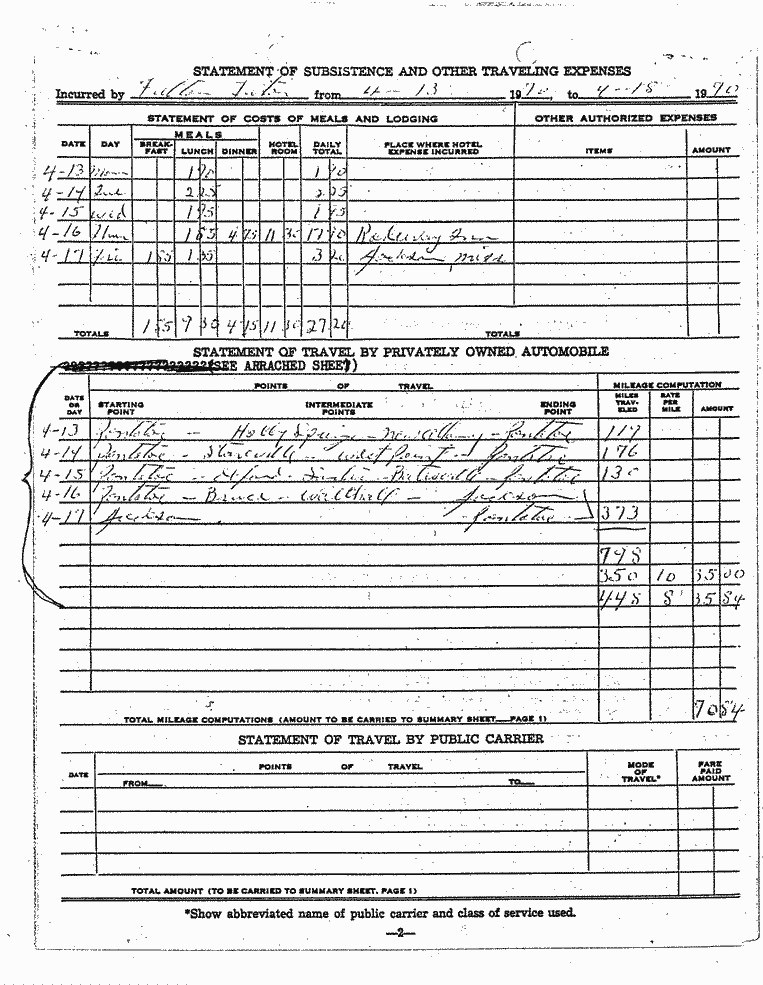 STATEMENT OF SUBSISTENCE AND OTHER TRAVELING EXPENSES
Incurred by from 4-13 1970, to 4-18 1970
STATEMENT OF COSTS OF MEALS AND LODGING OTHER AUTHORIZED EXPENSES
MEALS
DATE DAY BREAK-FAST LUNCH DINNER HOTEL ROOM DAILY TOTAL PLACE WHERE HOTEL EXPENSE INCURRED ITEMS AMOUNT
4-13 Mon 1
4-14 Tue 2 25 2 25
4-15 Wed 1 1
4-16 Thur 1 85 4 75 11 30 17 90 Inn
4-17 Fri 1 55 1 3 20 Jackson, Miss
TOTALS 1 55 9 30 4 75 11 30 27 20 TOTALS
STATEMENT OF TRAVEL BY PRIVATELY OWNED AUTOMOBILE
(SEE ARRACHED SHEET)
POINTS OF TRAVEL MILEAGE COMPUTATION
DATE OR DAY STARTING POINT INTERMEDIATE POINTS ENDING POINT MILES TRAV-ELED RATE PER MILE AMOUNT
4-13 Pontotoc - Holly Springs - New Albany - Pontotoc 119
4-14 Pontotoc - Starkville - West Point - Pontotoc 176
4-15 Pontotoc - Oxford - - Batesville - Pontotoc 130
4-16 Pontotoc - Bruce - Walthall - Jackson
4-17 Jackson - Pontotoc 373
798
350 10 35 00
448 8 35 84
70 84
TOTAL MILEAGE COMPUTATIONS (AMOUNT TO BE CARRIED TO SUMMARY SHEET PAGE 1)
STATEMENT OF TRAVEL BY PUBLIC CARRIER
DATE POINTS OF TRAVEL MODE OF TRAVEL* FARE PAID AMOUNT
FROM TO
TOTAL AMOUNT (TO BE CARRIED TO SUMMARY SHEET. PAGE 1)
*Show abbreviated name of public carrier and class of service used.
—2—